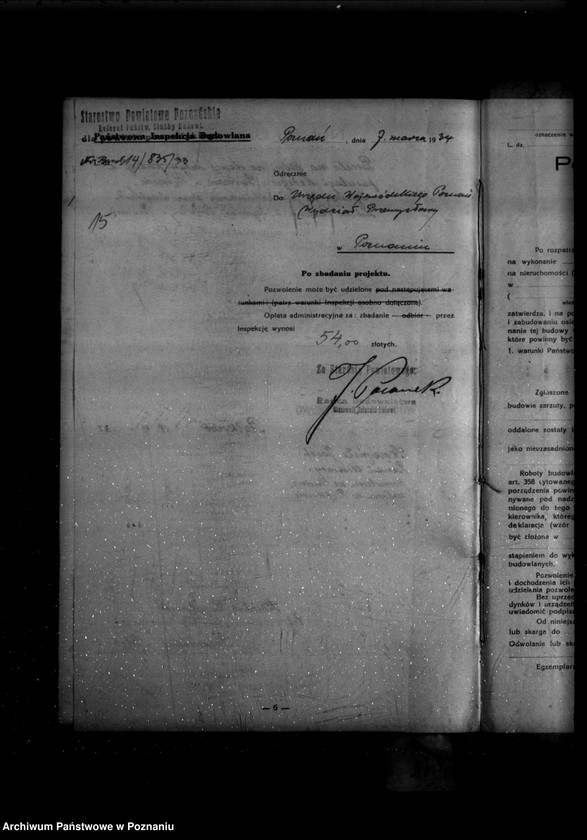 Starostwo Powiatowe Poznańskie
Referat Państw. Służby Budowl.
dla Państwowa Inspekcja Budowlana
Poznań, dnia 7. marca 1934
14/835/33
Odręcznie
15
Do Urzędu Wojewódzkiego Poznań
Wydział Przemysłowy
w Poznaniu
Po zbadaniu projektu.
Pozwolenie może być udzielone pod następującemi wa-
runkami (patrz warunki Inspekcji osobno dołączone).
Opłata administracyjne za: zbadanie — odbiór — przez
Inspekcję wynosi 54,00 złotych.
Za Starostę Powiatowego:
Radca Budownictwa
— 6 —
oznaczenie w
L. dz.
P
Po rozpatrz
na wykonanie
na nieruchomości (
w
(
zatwierdza, i na po
i zabudowaniu osie
nania tej budowy
które powinny być
1. warunki Państwo
Zgłaszone
budowie zarzuty, p
oddalone zostały
jako nieuzasadnion
Roboty budow
art. 358 cytowaneg
porządzenia powin
nywane pod nadz
nionego do tego
kierownika, któreg
deklarację (wzór
być złożona w
stąpieniem do wyk
budowlanych.
Pozwolenie
i dochodzenia ich
udzielania pozwole
Bez uprzed
dynków i urządzeń
uwiadomić podpisa
Od niniejsz
lub skarga do
Odwołanie lub ska
Egzemplarz
Archiwum Państwowe w Poznaniu